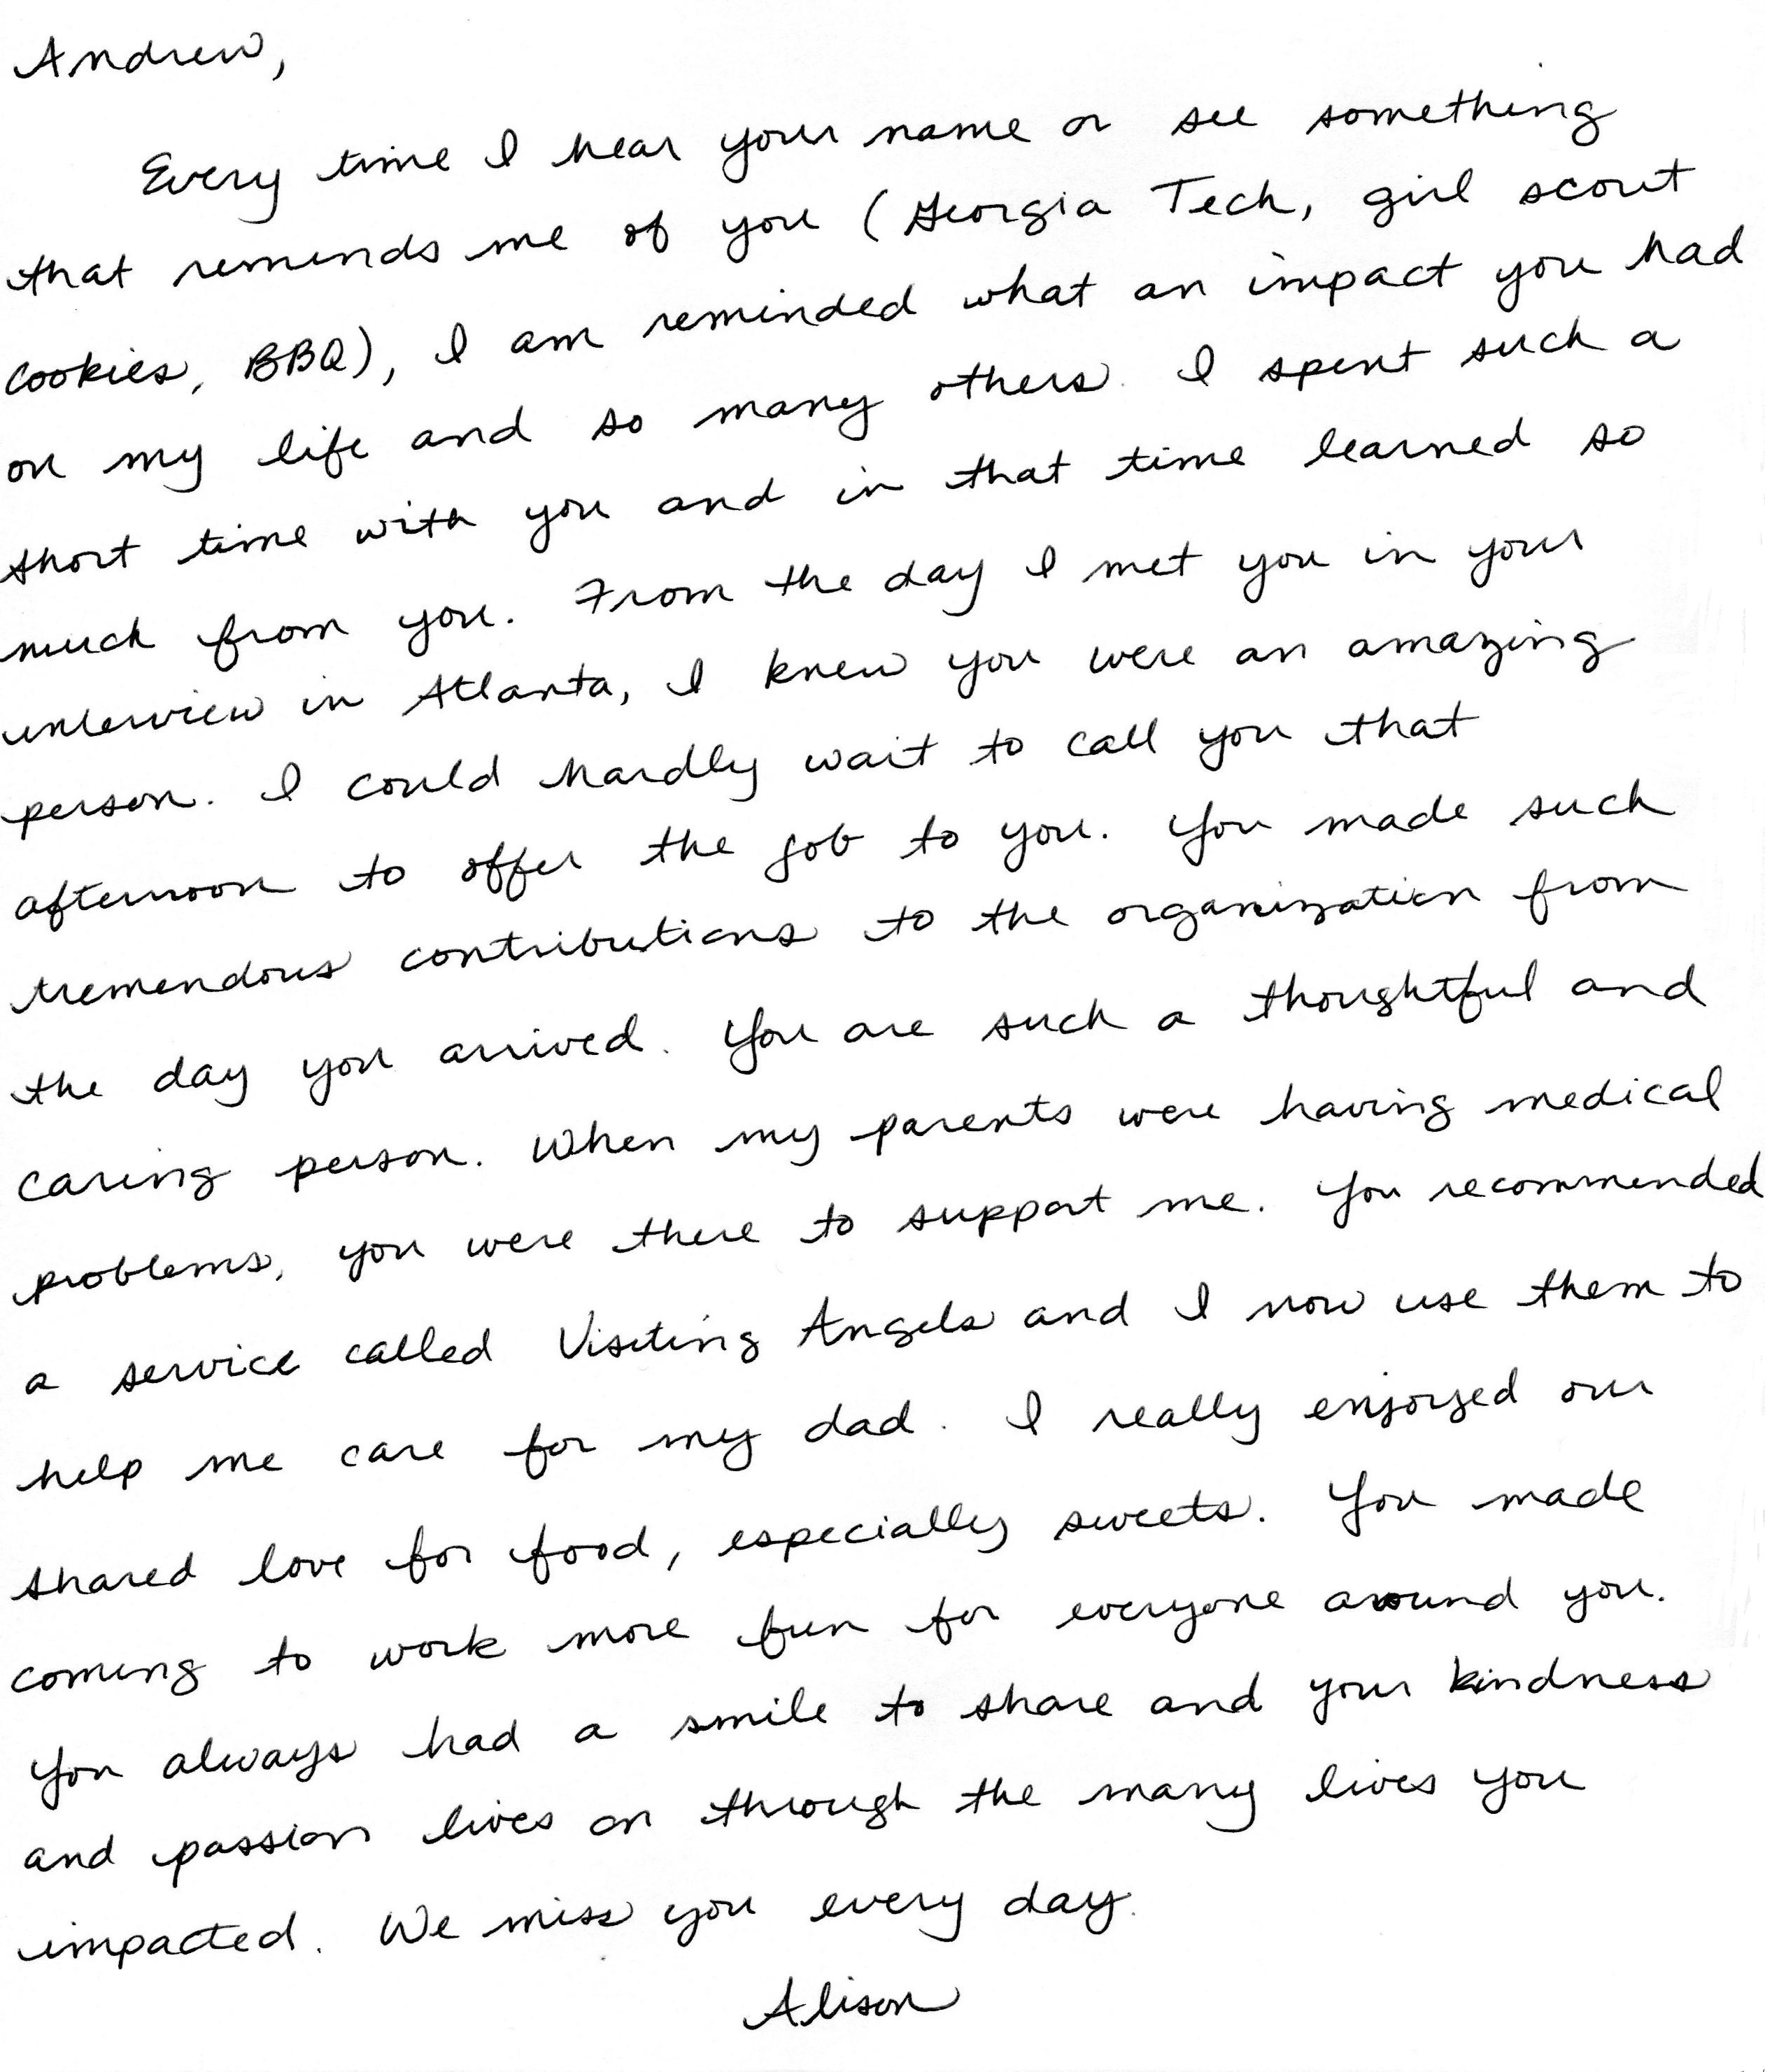 Andrew,
Every time I hear your name or see something
that reminds me of you (Georgia Tech, girl scout
cookies, BBQ), I am reminded what an impact you had
on my life and so many others. I spent such a
short time with you and in that time learned so
much from you. From the day I met you in your
interview in Atlanta, I knew you were an amazing
person. I could hardly wait to call you that
afternoon to offer the job to you. You made such
tremendous contributions to the organization from
the day you arrived. You are such a thoughtful and
caring person. When my parents were having medical
problems, you were there to support me. You recommended
a service called Visiting Angels and I now use them to
help me care for my dad. I really enjoyed our
shared love for food, especially sweets. You made
coming to work more fun for everyone around you.
You always had a smile to share and your kindness
and passion lives on through the many lives you
impacted. We miss you every day.
Alison